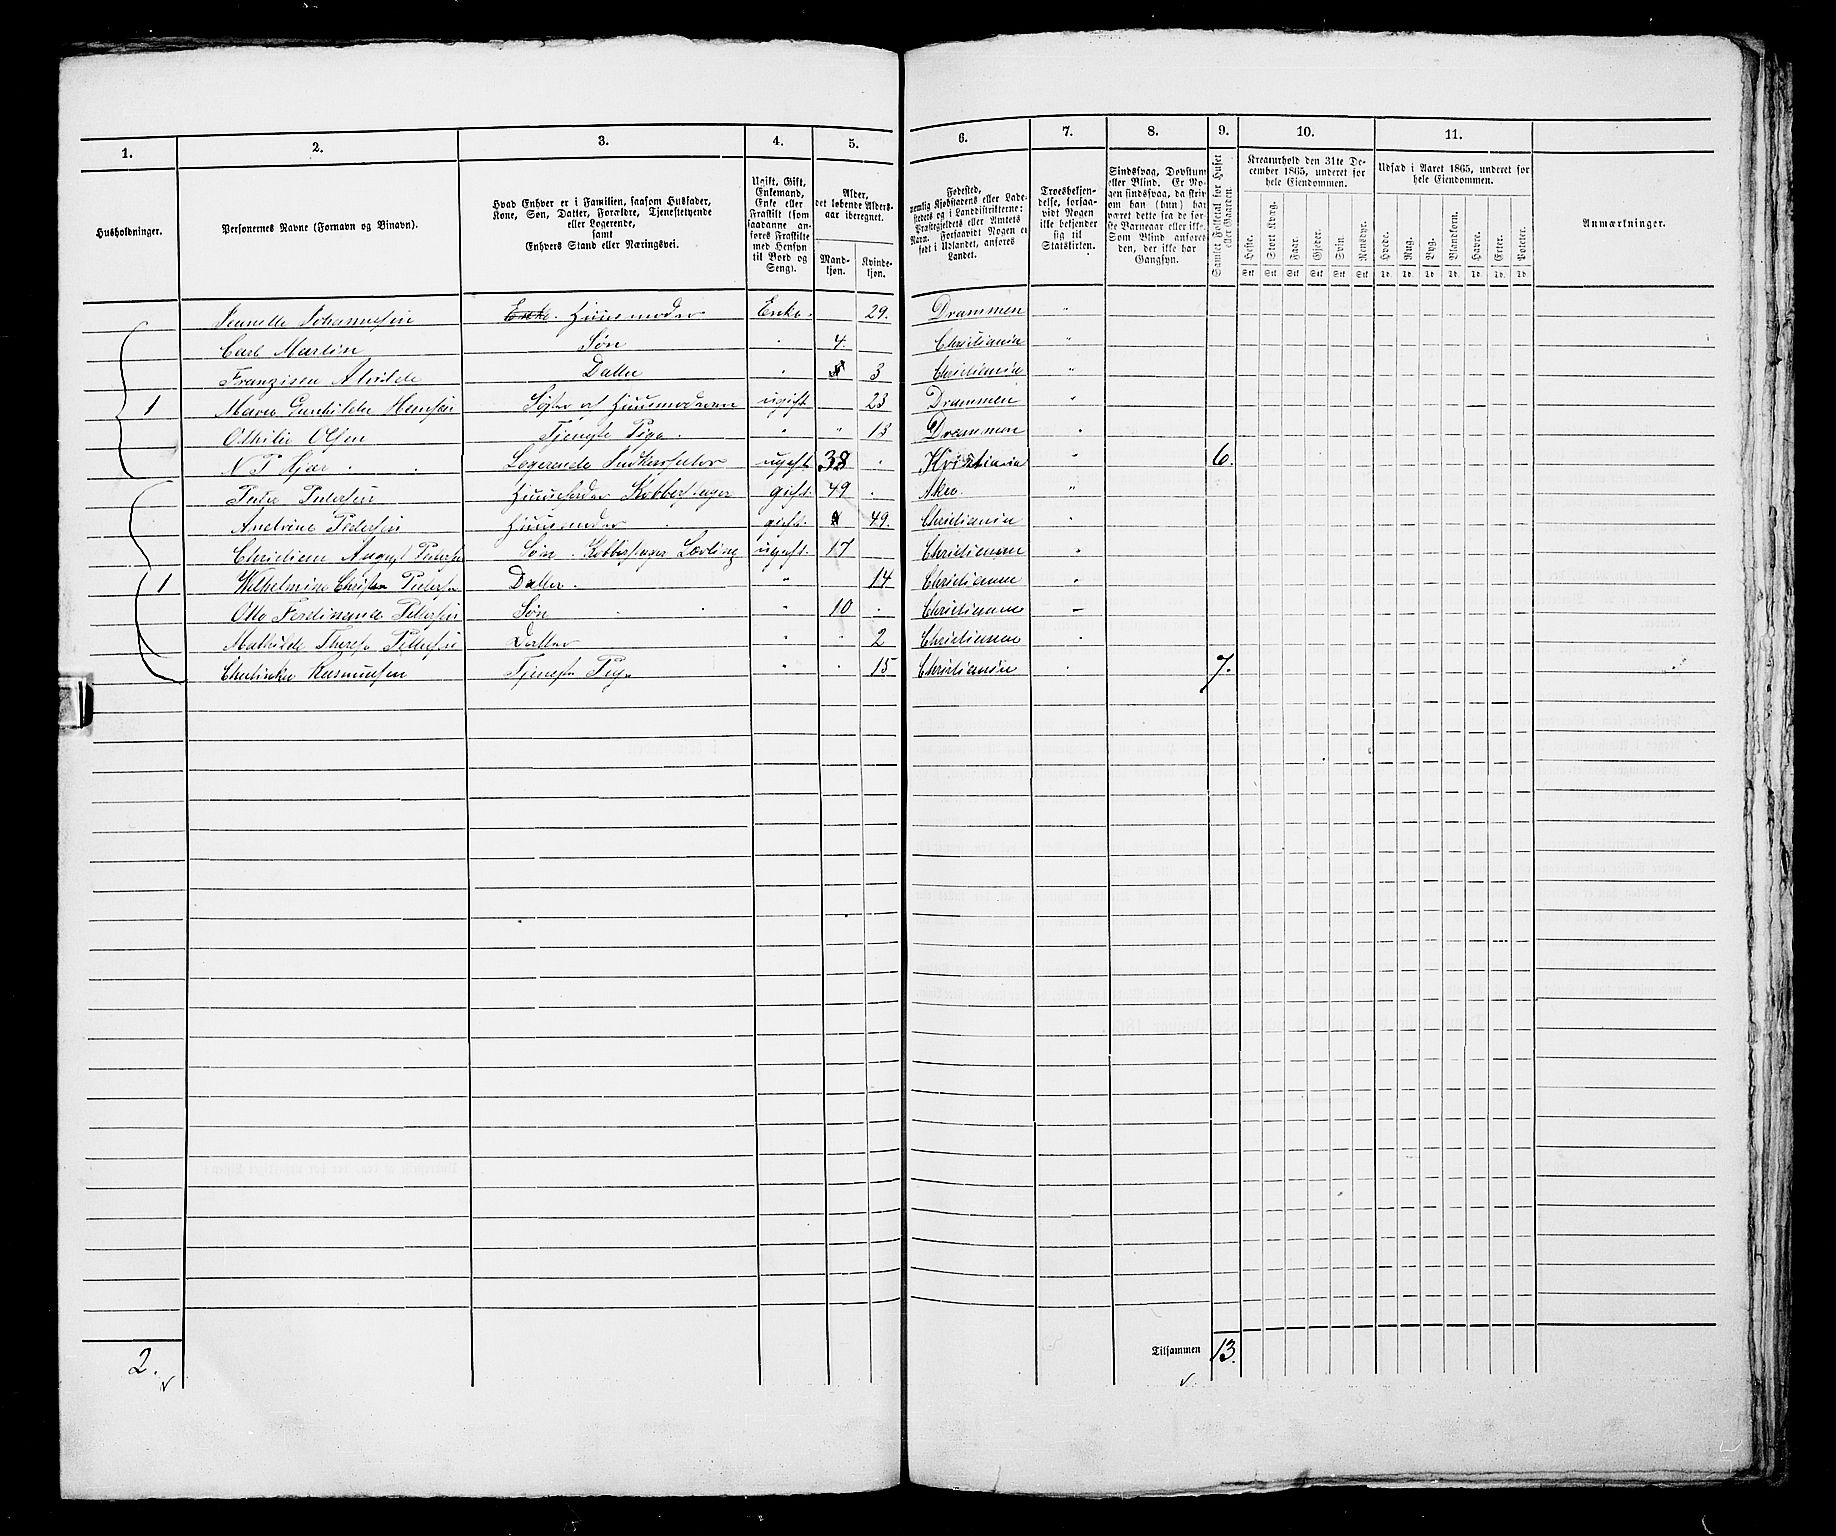 1. 2. 3. 4. 5. 6. 7. 8. 9. 10. 11.
Husholdninger.
Personernes Navne (Fornavn og Binavn).
Hvad Enhver er i Familien, saasom Husfader,
Kone, Søn, Datter, Forældre, Tjenestetyende
eller Logerende,
samt
Enhvers Stand eller Næringsvei.
Ugift, Gift,
Enkemand,
Enke eller
Fraskilt (som
saadanne an-
føres Fraskilte
med Hensyn
til Bord og
Seng).
Alder,
det løbende Alders-
aar iberegnet.
Mand-
kjøn.
Kvinde-
kjøn.
Fødested,
nemlig Kjøbstadens eller Lade-
stedets og i Landdistrikterne:
Præstegjeldets eller Amtets
Navn. Forsaavidt Nogen er
født i Udlandet, anføres
Landet.
Troesbekjen-
delse, forsaa-
vidt Nogen
ikke bekjender
sig til
Statskirken.
Sindssvag, Døvstum
eller Blind. Er No-
gen sindssvag, da skri-
ves om han (hun) har
været dette fra de før-
ste Barneaar eller ikke.
Som Blind anføres
den, der ikke har
Gangsyn.
Samlet Folketal for Huset
eller Gaarden.
Kreaturhold den 31te De-
cember 1865, underet for
hele Eiendommen.
Heste. Stort Kvæg. Faar. Gjeder. Svin. Rensdyr.
Stk Stk Stk Stk Stk Stk
Udsæd i Aaret 1865, underet for
hele Eiendommen.
Hvede. Rug. Byg. Blandkorn. Havre. Erter. Poteter.
Td. Td. Td. Td. Td. Td. Td.
Anmærkninger.
Jeanette Johannesen Enke. Huusmoder Enke. 29. Drammen "
Carl Martin Søn " 4. Christiania "
Franzisca Alvilde Datter " 3 Christiania "
1 Maren Gunhilde Hansen Søster af Huusmoderen ugift 23 Drammen "
Othilie Olsen Tjeneste Pige. " " 13 Drammen "
N P Kjær Logerende ugift 38 . Kristiania " 6.
Peder Pedersen Huusfader Kobberslager gift. 49 . Aker. "
Huusmoder gift. 49. Christiania "
Christian August Pedersen Søn. Kobberslager Lærling ugift. 17 Christiania "
1 Wilhelmine Christine Pedersen Datter. " 14 Christiania "
Otto Ferdinand Pedersen Søn " 10 . Christiania "
Mathilde Therese Pedersen Datter " " 2 Christiania "
Rasmussen Tjeneste Pige " . 15 Christiania . 7.
2. Tilsammen 13.